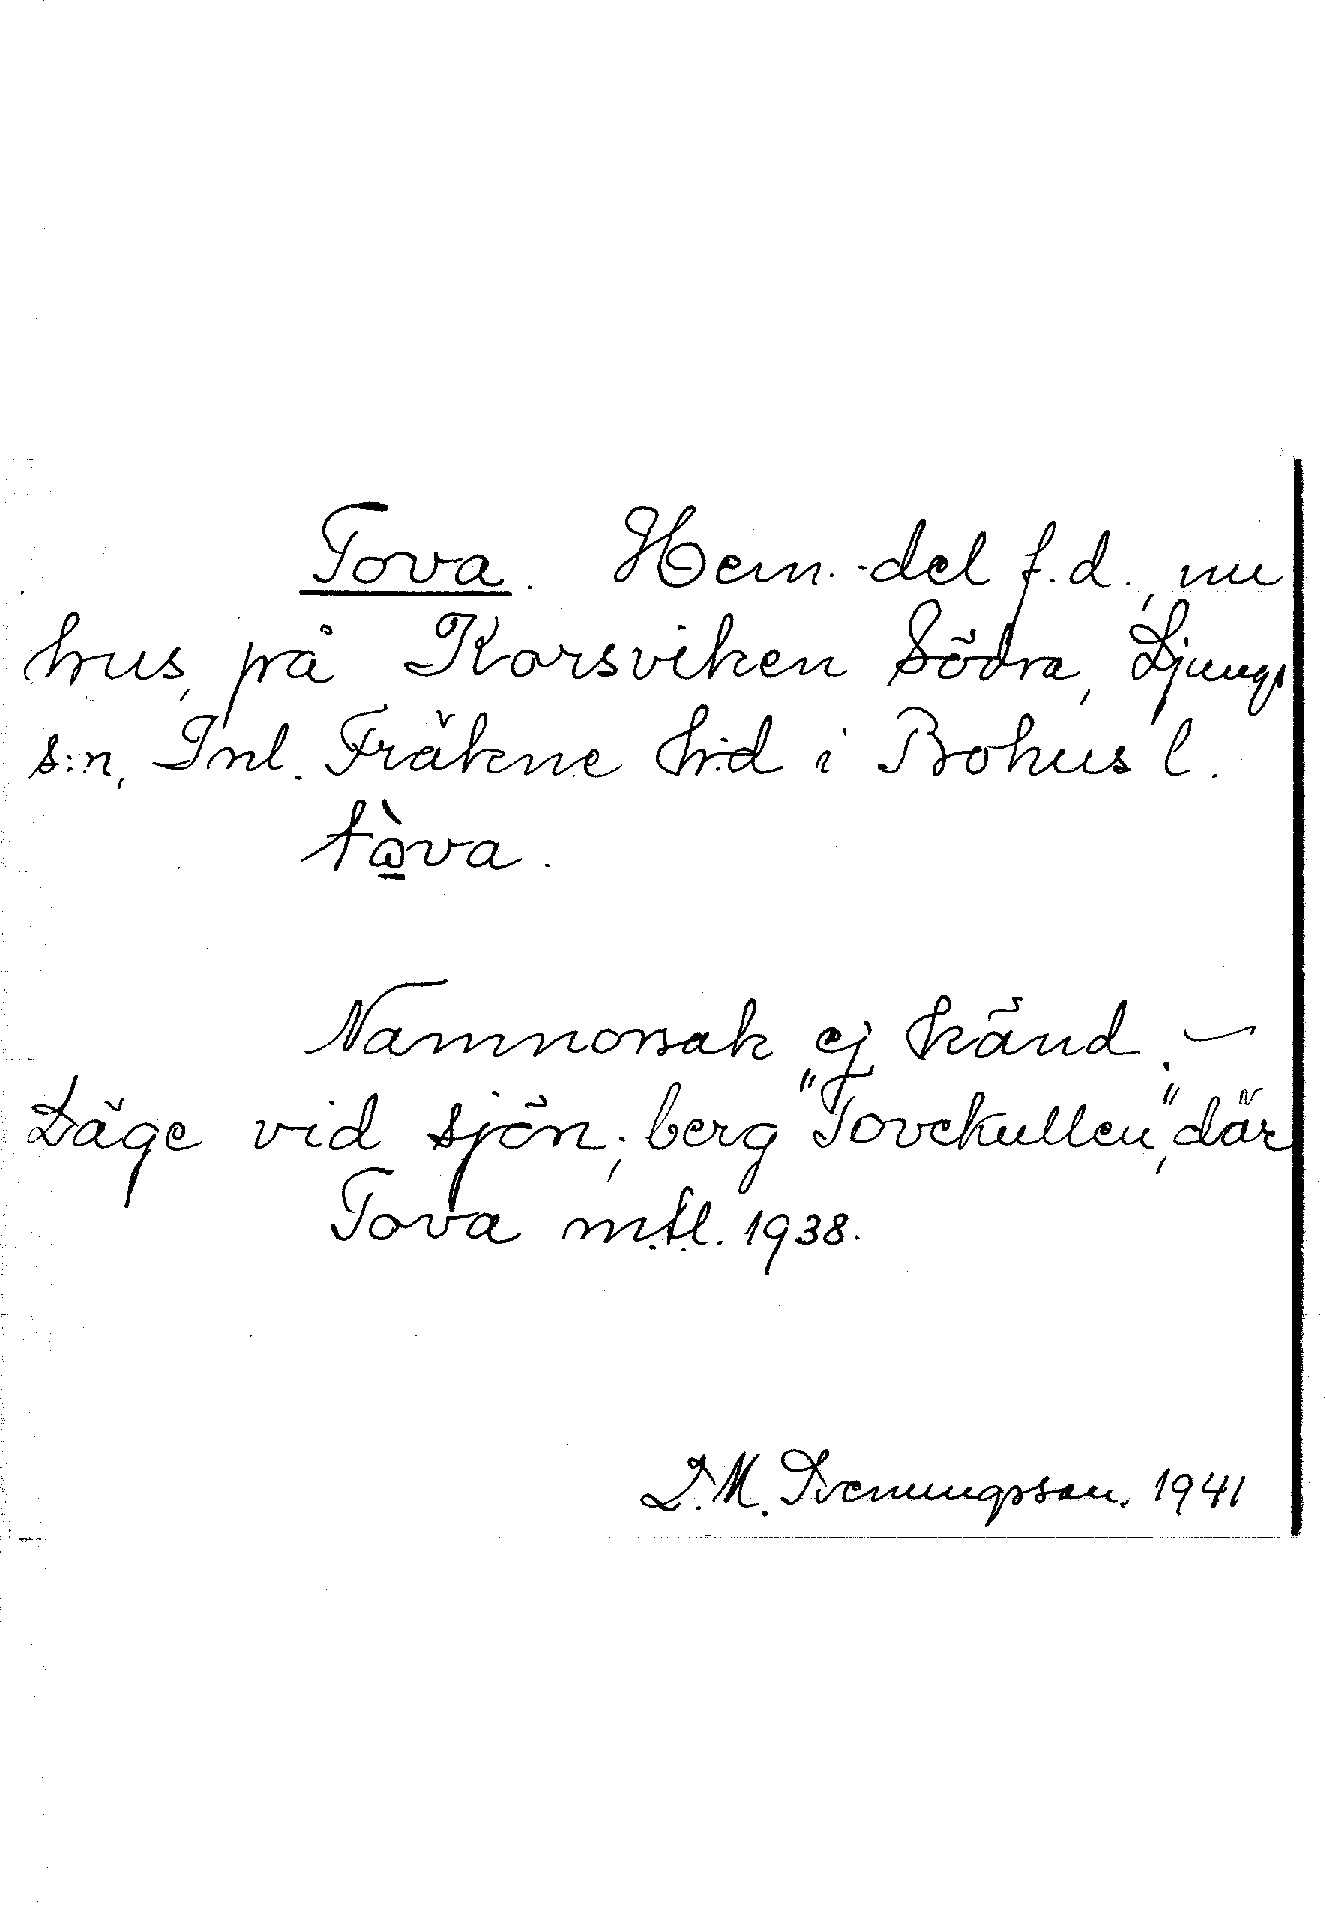 Tova. Hem.-del f.d., nu
hus, på Korsviken Södra, Ljungs
s:n, Inl. Fräkne h:d i Bohus l.
Namnorsak ej känd. —
Läge vid sjön; berg "Tovekullen", där
Tova m.fl. 1938.
D. M. Svenungsson. 1941